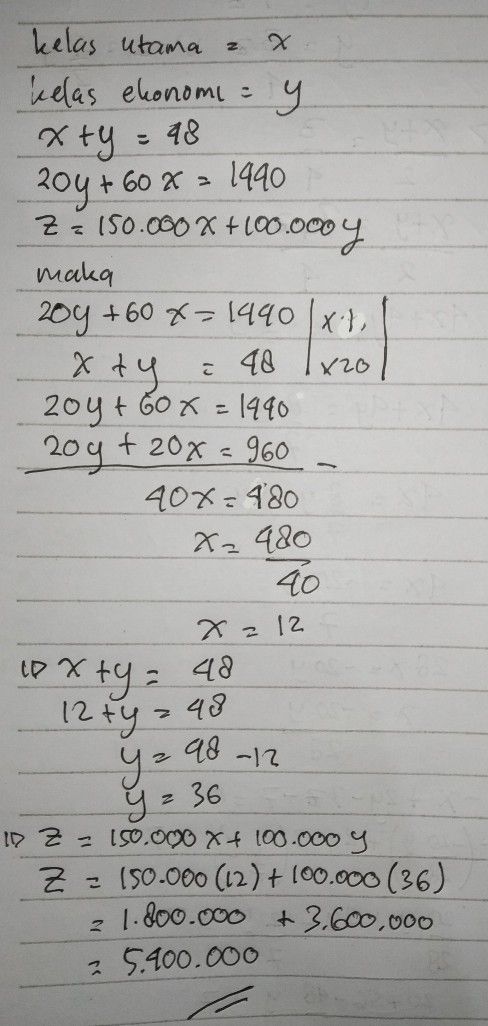 kelas utama = x
kelas ekonomi = y
x + y = 48
20y + 60x = 1440
z = 150.000x + 100.000y
maka
20y + 60x = 1440 | x1 |
x + y = 48 | x20 |
20y + 60x = 1440
20y + 20x = 960 -
40x = 480
x = 480
40
x = 12
x + y = 48
12 + y = 48
y = 48 - 12
y = 36
z = 150.000x + 100.000y
z = 150.000(12) + 100.000(36)
= 1.800.000 + 3.600.000
= 5.400.000